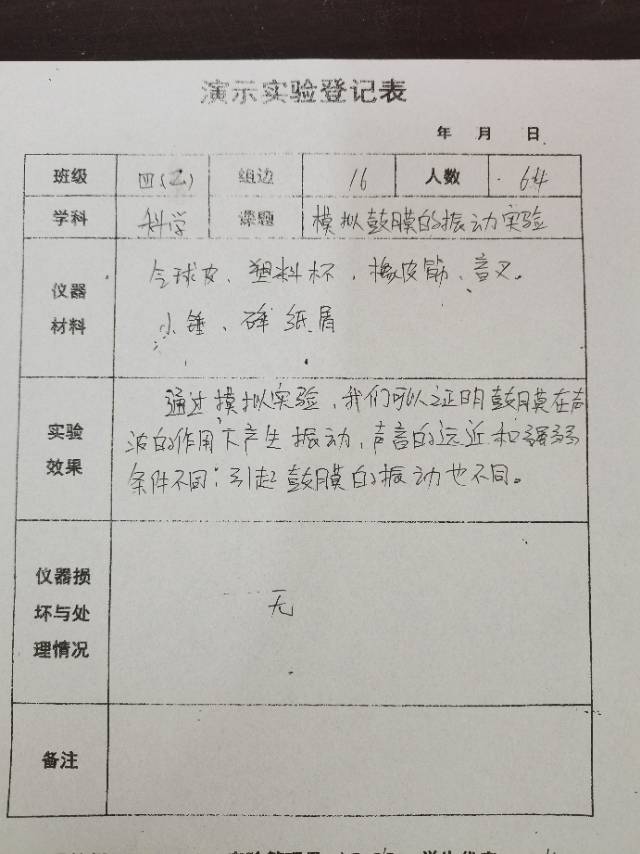 演示实验登记表
年 月 日
班级 四(2) 组边 16 人数 64
学科 科学 课题 模拟鼓膜的振动实验
仪器材料 气球皮、塑料杯、橡皮筋、音叉。
小锤、碎纸屑
实验效果 通过模拟实验,我们可以证明鼓膜在声
波的作用下产生振动,声音的远近和强弱
条件不同;引起鼓膜的振动也不同。
仪器损坏与处理情况 无
备注